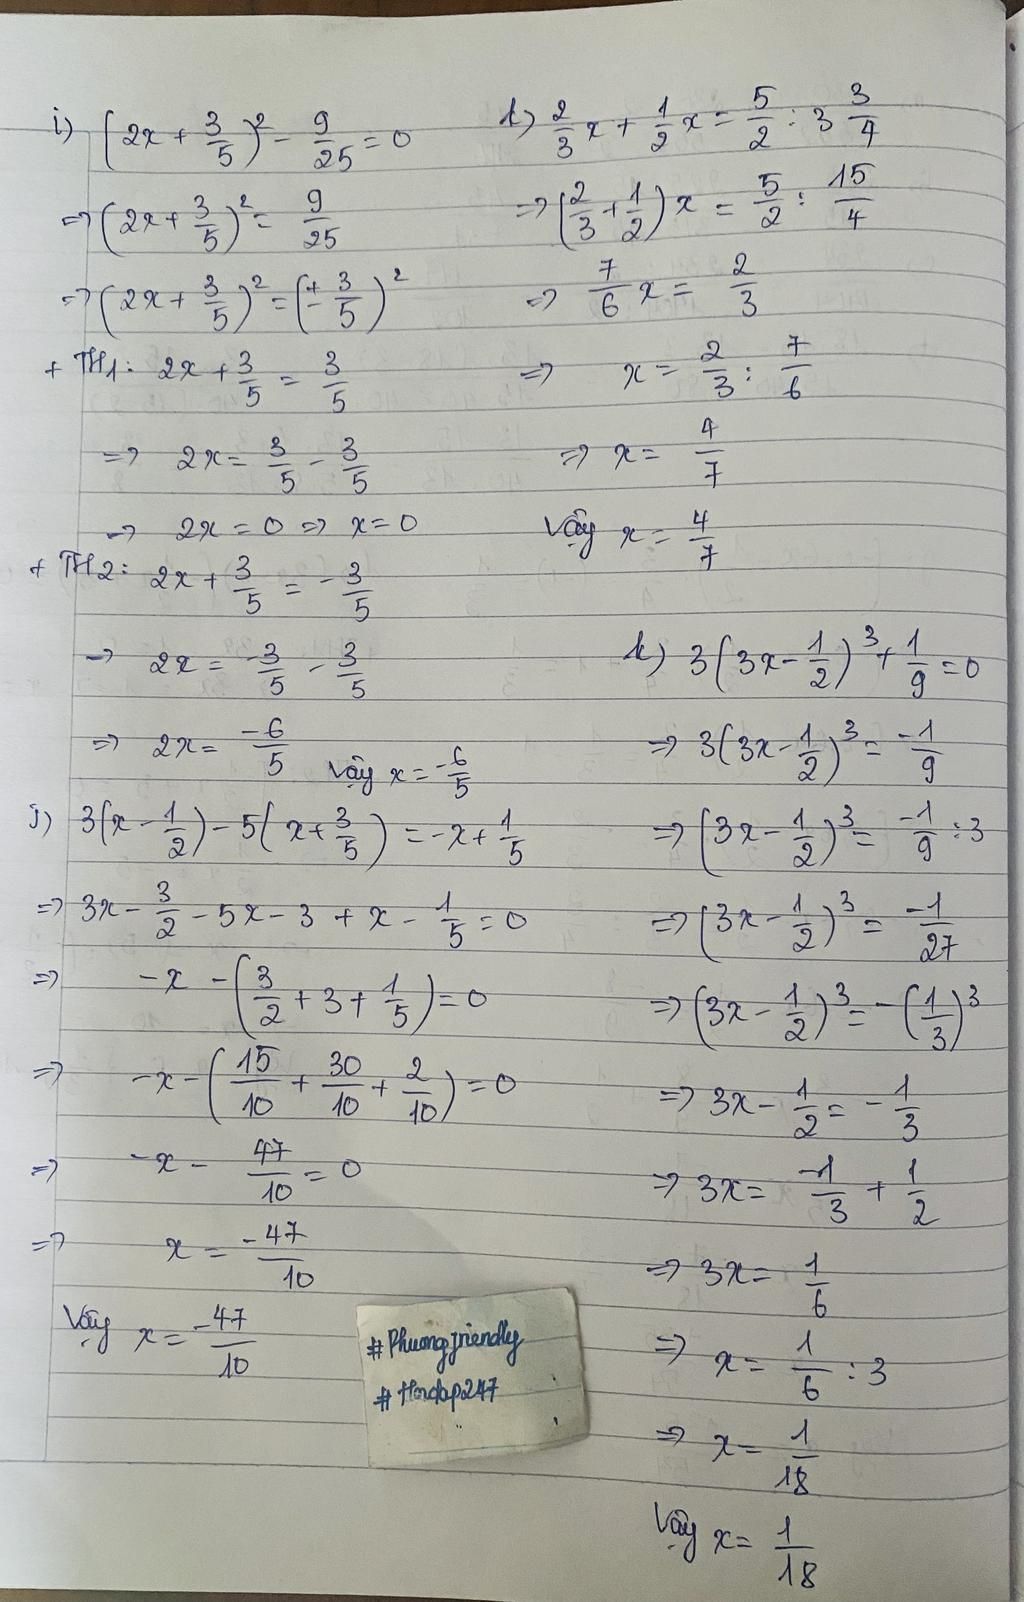 i) (2x + 3/5)² - 9/25 = 0
=> (2x + 3/5)² = 9/25
=> (2x + 3/5)² = (± 3/5)²
+ TH1: 2x + 3/5 = 3/5
=> 2x = 3/5 - 3/5
=> 2x = 0 => x = 0
+ TH2: 2x + 3/5 = -3/5
=> 2x = -3/5 - 3/5
=> 2x = -6/5
Vậy x = -6/5
j) 3(x - 1/2) - 5(x + 3/5) = -x + 1/5
=> 3x - 3/2 - 5x - 3 + x - 1/5 = 0
=> -x - (3/2 + 3 + 1/5) = 0
=> -x - (15/10 + 30/10 + 2/10) = 0
=> -x - 47/10 = 0
=> x = -47/10
Vậy x = -47/10
l) 2/3 x + 1/2 x = 5/2 : 3 3/4
=> (2/3 + 1/2) x = 5/2 : 15/4
=> 7/6 x = 2/3
=> x = 2/3 : 7/6
=> x = 4/7
Vậy x = 4/7
k) 3(3x - 1/2)³ + 1/9 = 0
=> 3(3x - 1/2)³ = -1/9
=> (3x - 1/2)³ = -1/9 : 3
=> (3x - 1/2)³ = -1/27
=> (3x - 1/2)³ = -(1/3)³
=> 3x - 1/2 = -1/3
=> 3x = -1/3 + 1/2
=> 3x = 1/6
=> x = 1/6 : 3
=> x = 1/18
Vậy x = 1/18
#Phuongfriendly
#Hoidap247